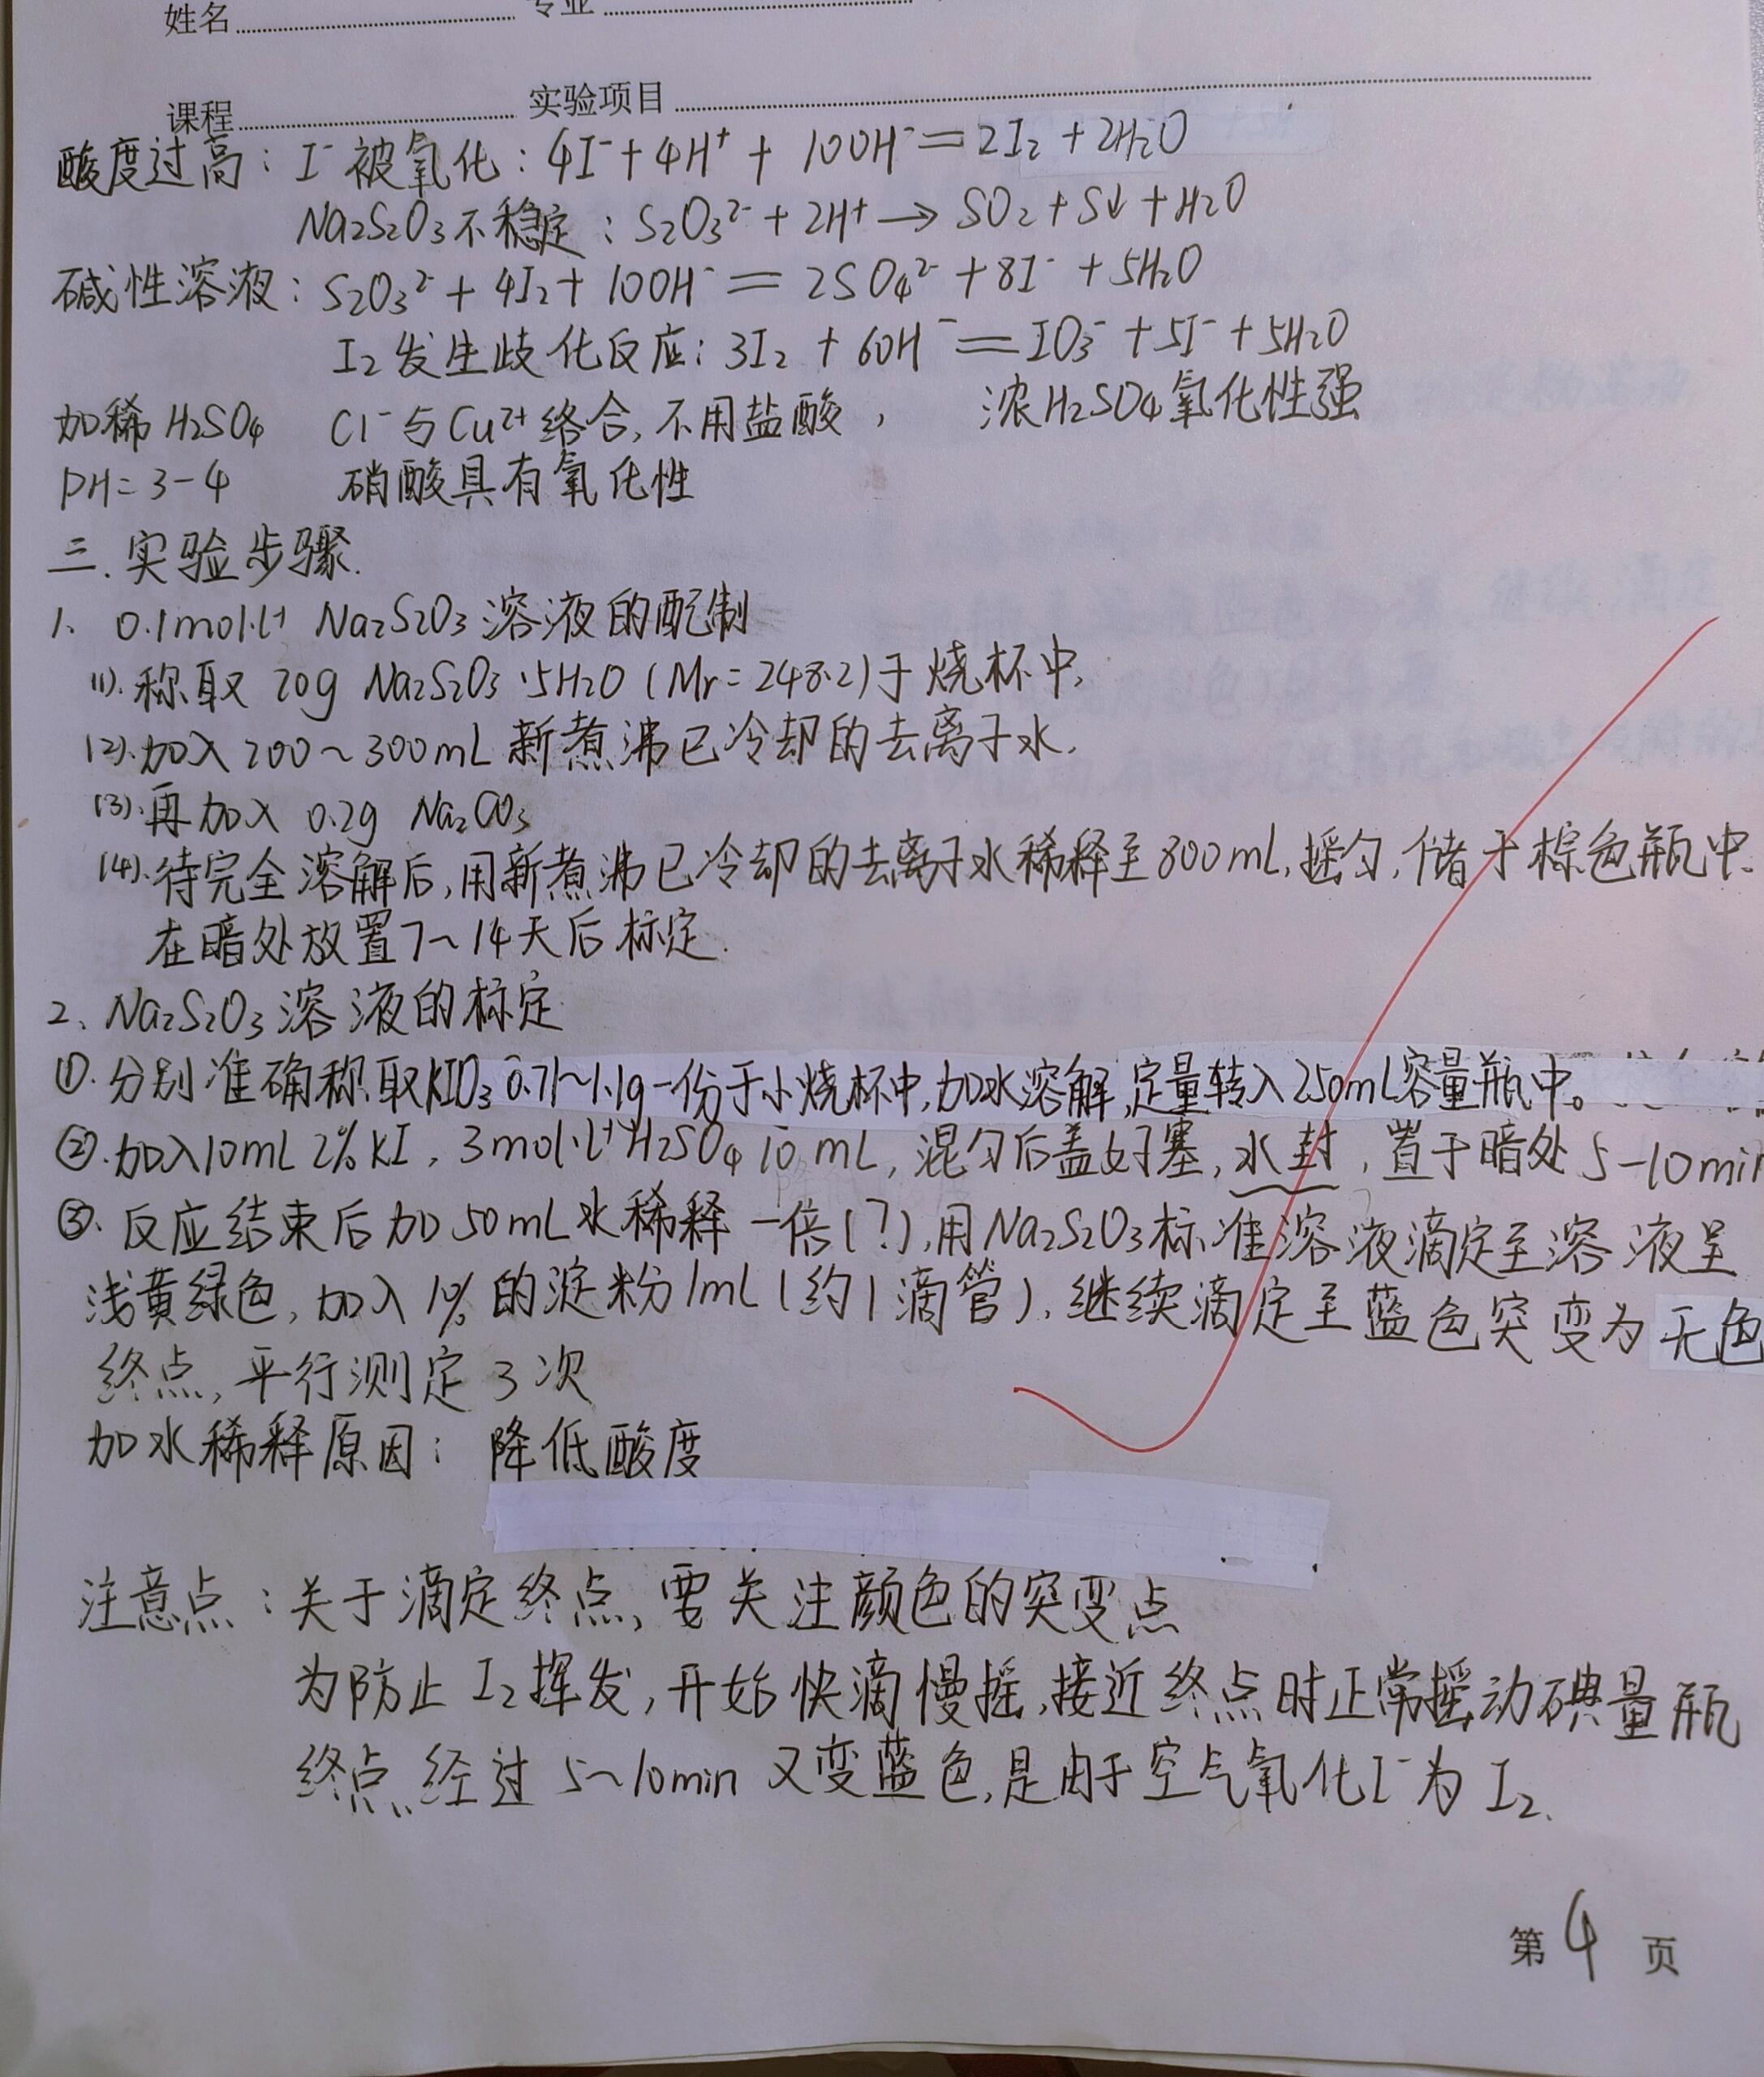 姓名 专业
课程 实验项目
酸度过高：I⁻被氧化：4I⁻+4H⁺+10OH⁻=2I₂+2H₂O
Na₂S₂O₃不稳定：S₂O₃²⁻+2H⁺→SO₂+S↓+H₂O
碱性溶液：S₂O₃²⁻+4I₂+10OH⁻=2SO₄²⁻+8I⁻+5H₂O
I₂发生歧化反应：3I₂+6OH⁻=IO₃⁻+5I⁻+5H₂O
加稀H₂SO₄ Cl⁻与Cu²⁺络合，不用盐酸， 浓H₂SO₄氧化性强
PH=3-4 硝酸具有氧化性
三.实验步骤.
1、0.1mol·L⁻¹ Na₂S₂O₃溶液的配制
(1).称取20g Na₂S₂O₃·5H₂O（Mr=248.2）于烧杯中，
(2).加入200~300mL新煮沸已冷却的去离子水.
(3).再加入0.2g Na₂CO₃
(4).待完全溶解后，用新煮沸已冷却的去离子水稀释至800mL，摇匀，储于棕色瓶中.
在暗处放置7~14天后标定.
2、Na₂S₂O₃溶液的标定
①.分别准确称取KIO₃ 0.71~1.1g一份于小烧杯中，加水溶解，定量转入250mL容量瓶中。
②.加入10mL 2% KI，3mol·L⁻¹ H₂SO₄ 10mL，混匀后盖好塞，水封，置于暗处5-10min
③.反应结束后加50mL水稀释一倍(?)，用Na₂S₂O₃标准溶液滴定至溶液呈
浅黄绿色，加入1%的淀粉1mL（约1滴管），继续滴定至蓝色突变为无色
终点，平行测定3次
加水稀释原因：降低酸度
注意点：关于滴定终点，要关注颜色的突变点
为防止I₂挥发，开始快滴慢摇，接近终点时正常摇动碘量瓶
终点经过5~10min又变蓝色，是由于空气氧化I⁻为I₂.
第4页